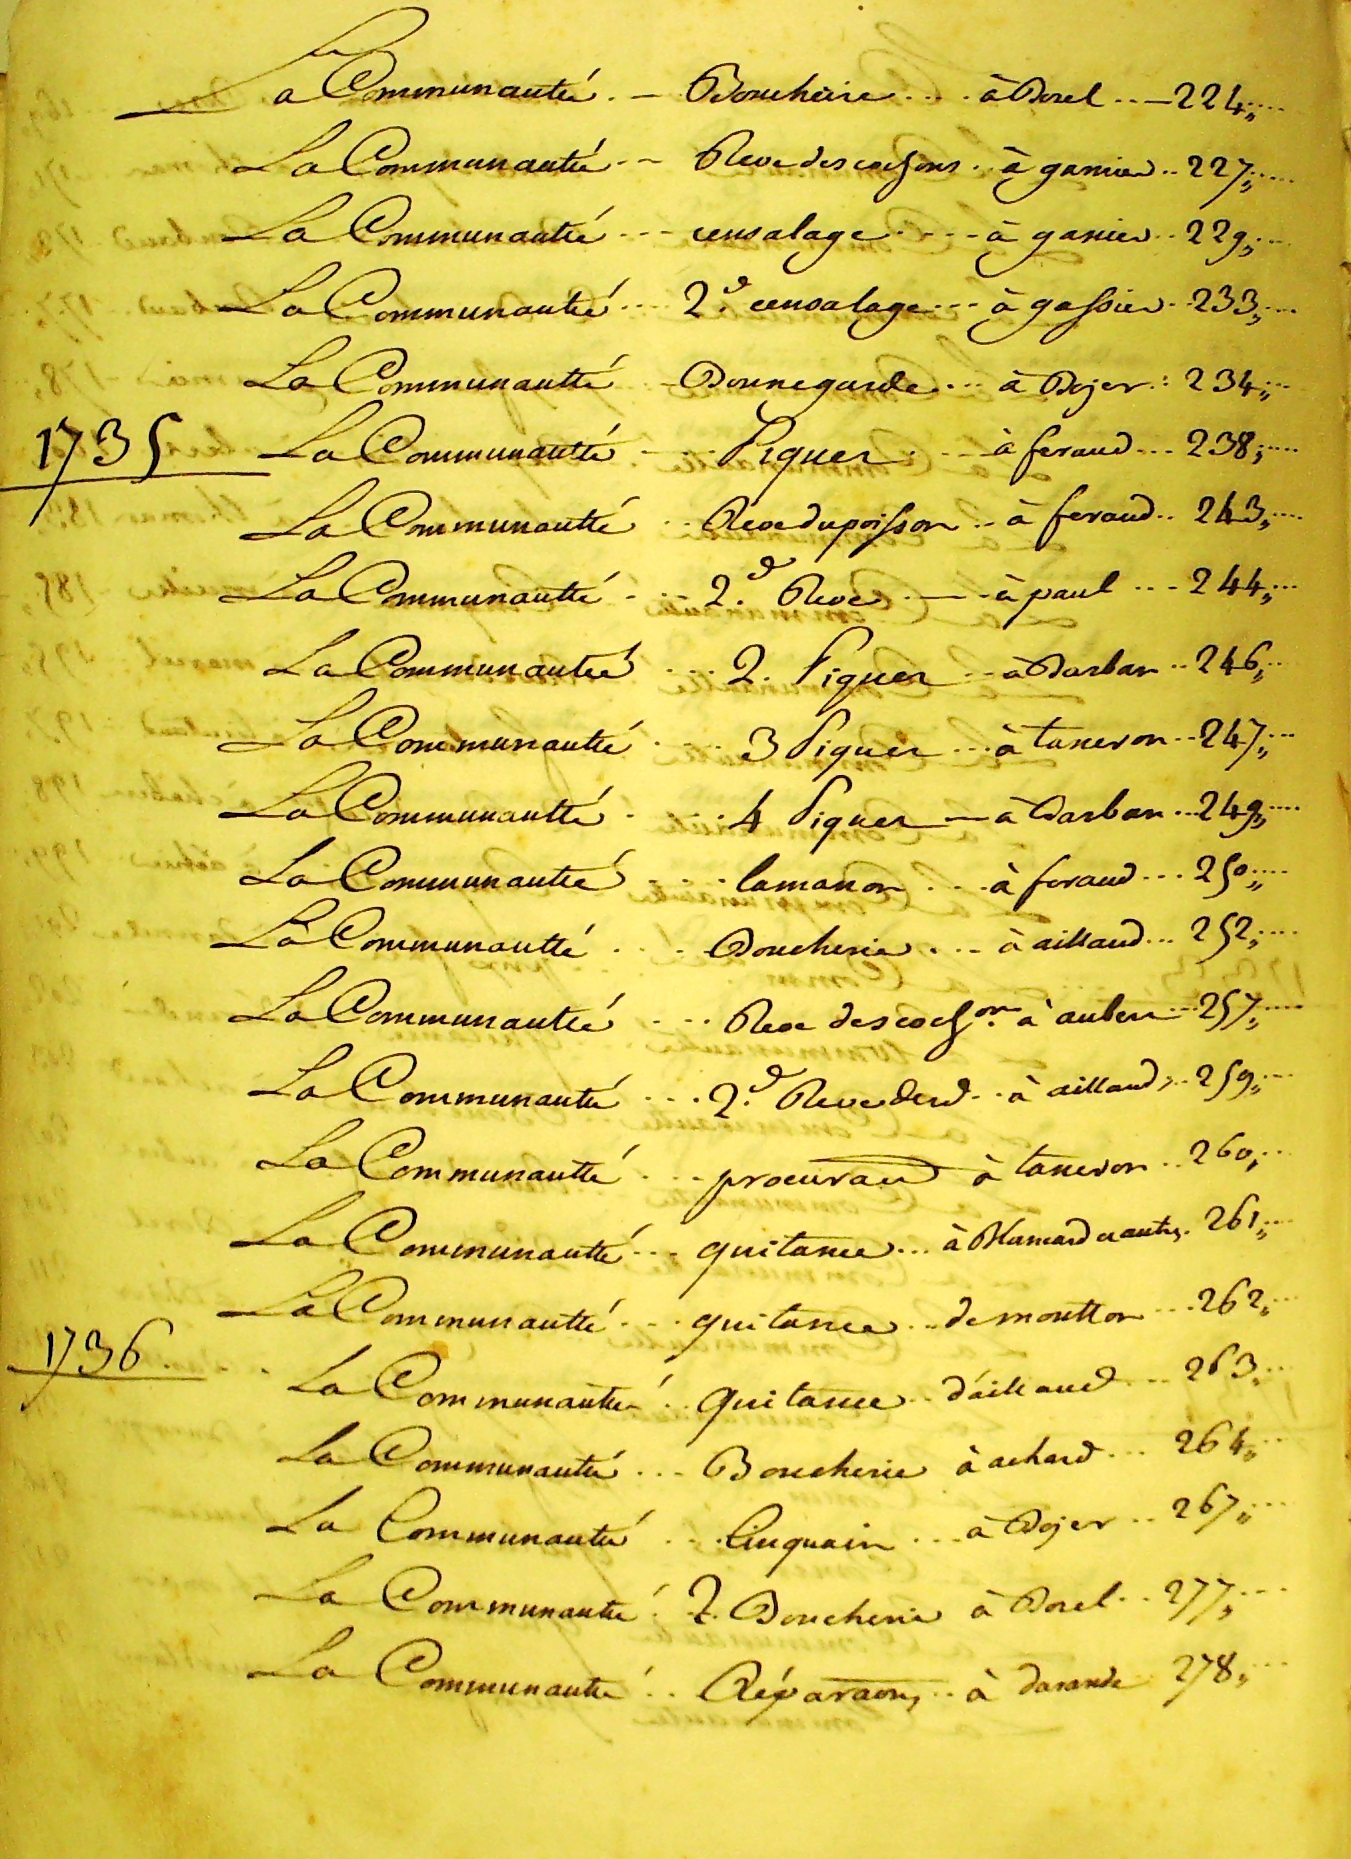 La Communauté . _ Boucherie .... à Borel .. _ 224,,....
La Communautté .. _ Reve des cochons . à garnier .. 227,,....
La Communautté ... censalage .... à ganier .. 229,,...
La Communautté ... 2.d censalage ... à gassier .. 233,,...
La Communautté Bonnegarde ... à Bojer .. 234,,...
1735 La Communautté ... Piquet ... à feraud ... 238,,...
La Communautté .. Reve du poisson .. à feraud .. 243,,...
La Communautté ... 2.d Reve ... à paul ... 244,,...
La Communautté ... 2. Piquet .. à Barban .. 246,,..
La Communautté ... 3 Piquet ... à taneron .. 247,,...
La Communautté .. 4 Piquet _ à Barban ... 249,,...
La Communautté .... lamanon ... à feraud ... 250,,...
La Communautté ... Boucherie ... à aillaud ... 252,,...
La Communautté .... Reve des coch.ons à aubert ... 257,,...
La Communauté .... 2.d Reve desd. .. à aillaud .. 259,,...
La Communautté .... procura͞on à taneron .. 260,,...
La Communautté ... quitance ... à Blancard et autres . 261,,...
La Communautté .... quitance .. de moutton ... 262,,...
1736 . La Communautté .. quitance .. d'aillaud ... 263...
La Communauté ... Boucherie à achard ... 264,,...
La Communauté ... Cinquain ... à Bojer .. 267,,...
La Communauté . 2. Boucherie à Borel .. 277,,...
La Communauté .. Répara͞ons .. à durande 278,,...